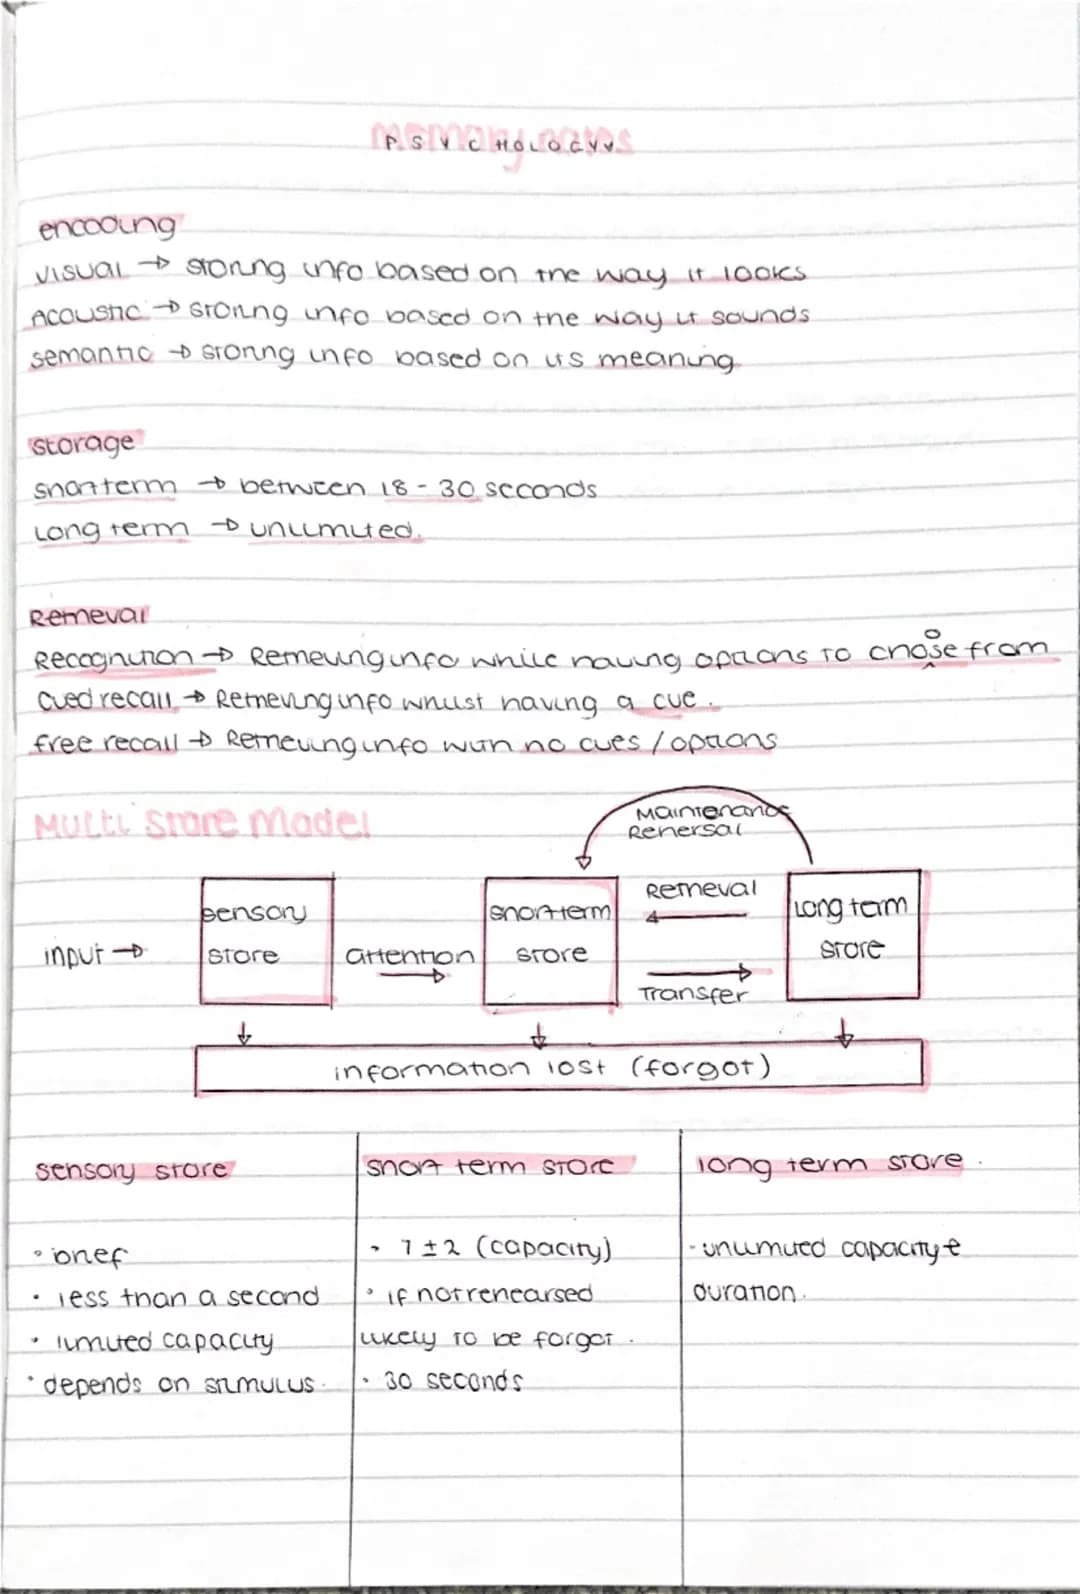 memory notes
PSYCHOLOGY
encoding
visual → storing info based on the way it looks
Acoustic → storing info based on the way it sounds
semantic → storing info based on its meaning
storage
short term → between 18-30 seconds
Long term → unlimited.
Retrieval
Recognition → Retrieving info while having options to choose from
Cued recall → Retrieving info whilst having a cue.
free recall → Retrieving info with no cues / options
Multi Store Model
Maintenance
Rehersal
input →
sensory
store
attention
short term
store
Retrieval
Transfer
Long term
store
information lost (forgot)
sensory store
• brief
• less than a second
• limited capacity
• depends on stimulus.
short term store
• 7±2 (capacity)
• if not rehearsed
likely to be forgot.
• 30 seconds
long term store.
• unlimited capacity &
duration.